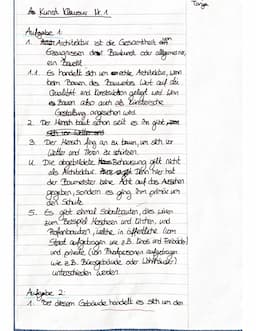 Tanja
Kunst Klausur Nr. 1
Aufgabe 1:
1. Architektur ist die Gesamtheit von
Erzeugnissen der Baukunst oder allgemeiner,
ein Baustil.
1.1. Es handelt sich um echte Architektur, wenn
beim Bauen des Bauwerkes Wert auf die
Qualität und Konstruktion gelegt wird. Wenn
Bauen also auch als künstlerische
Gestaltung angesehen wird.
2. Der Mensch baut schon seit es ihn gibt,
sich vor Wetter und
3. Der Mensch fing an zu bauen, um sich vor
Wetter und Tieren zu schützen.
4. Die abgebildete Behausung gilt nicht
als Architektur. Denn hier hat
der Baumeister keine Acht auf das Aussehen
gegeben, sondern es ging ihm primär um
den Schutz.
5. Es gibt einmal Sakralbauten, dies wären
zum Beispiel Moscheen und Kirchen, und
Profanbauten, welche in öffentliche (vom
Staat aufgetragen wie z.B. Kinos und Freibäder)
und private (von Privatpersonen aufgetragen
wie z.B. Bürogebäude oder Wohnhäuser)
unterschieden werden.
Aufgabe 2:
1. Bei diesem Gebäude handelt es sich um den